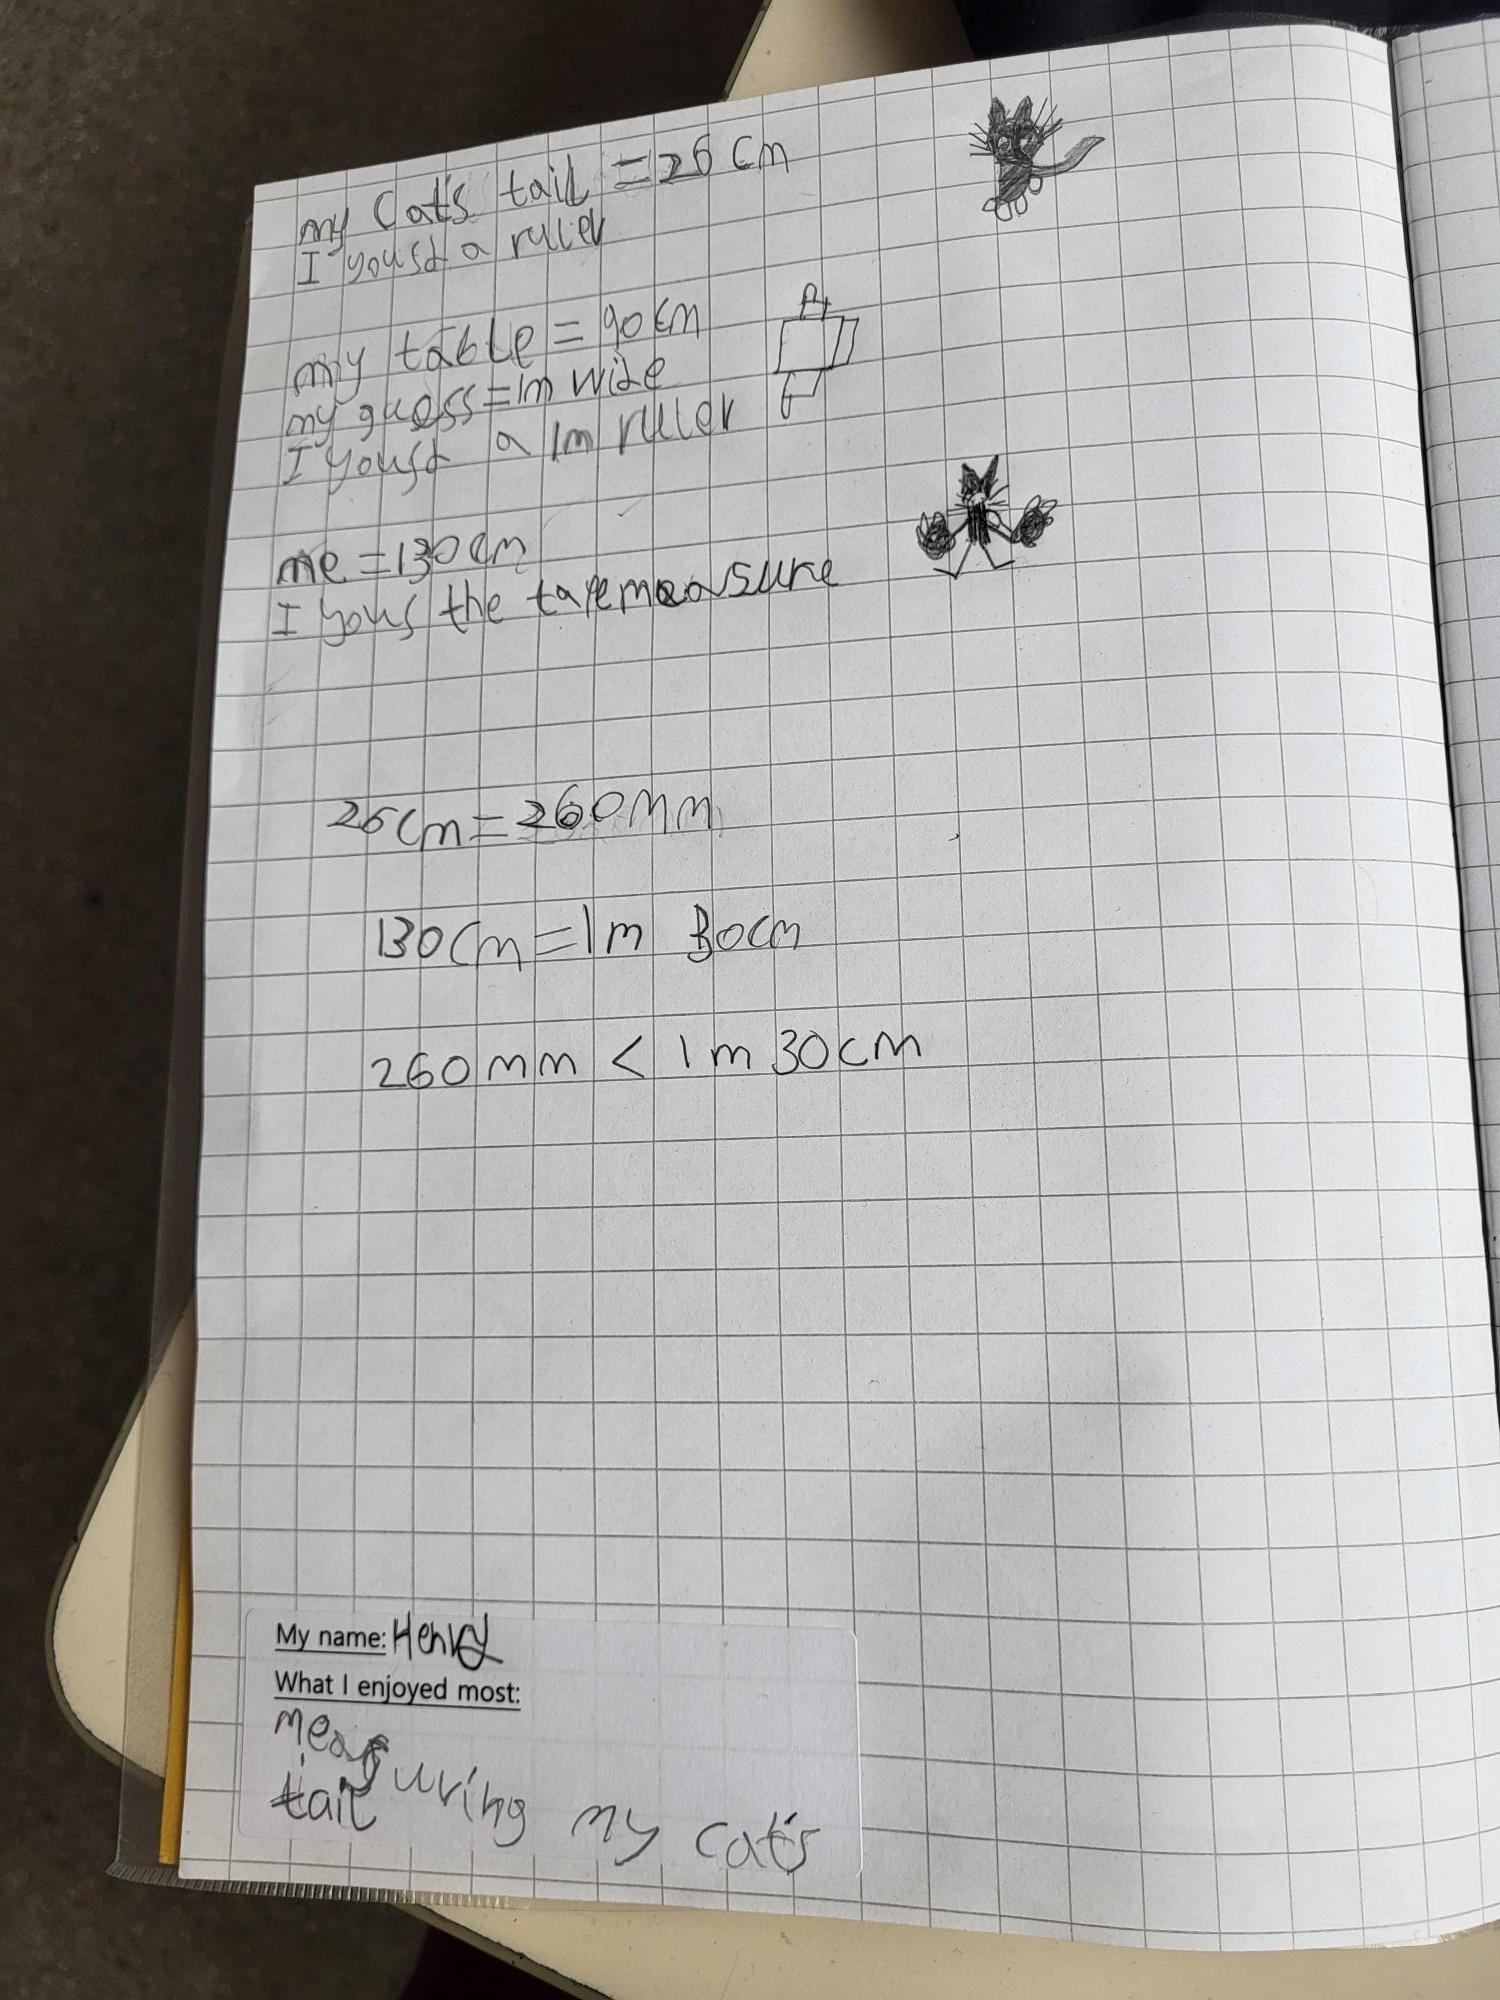 my Cat's tail = 26 cm
I yousd a ruller
my table = 90 cm
my guess = 1m wide
I yousd a 1m ruller
me = 130 cm
I yous the tapemeasure
26 cm = 260 mm
130 cm = 1 m 30 cm
260 mm < 1 m 30 cm
My name: Henry
What I enjoyed most:
measuring my cat's
tail